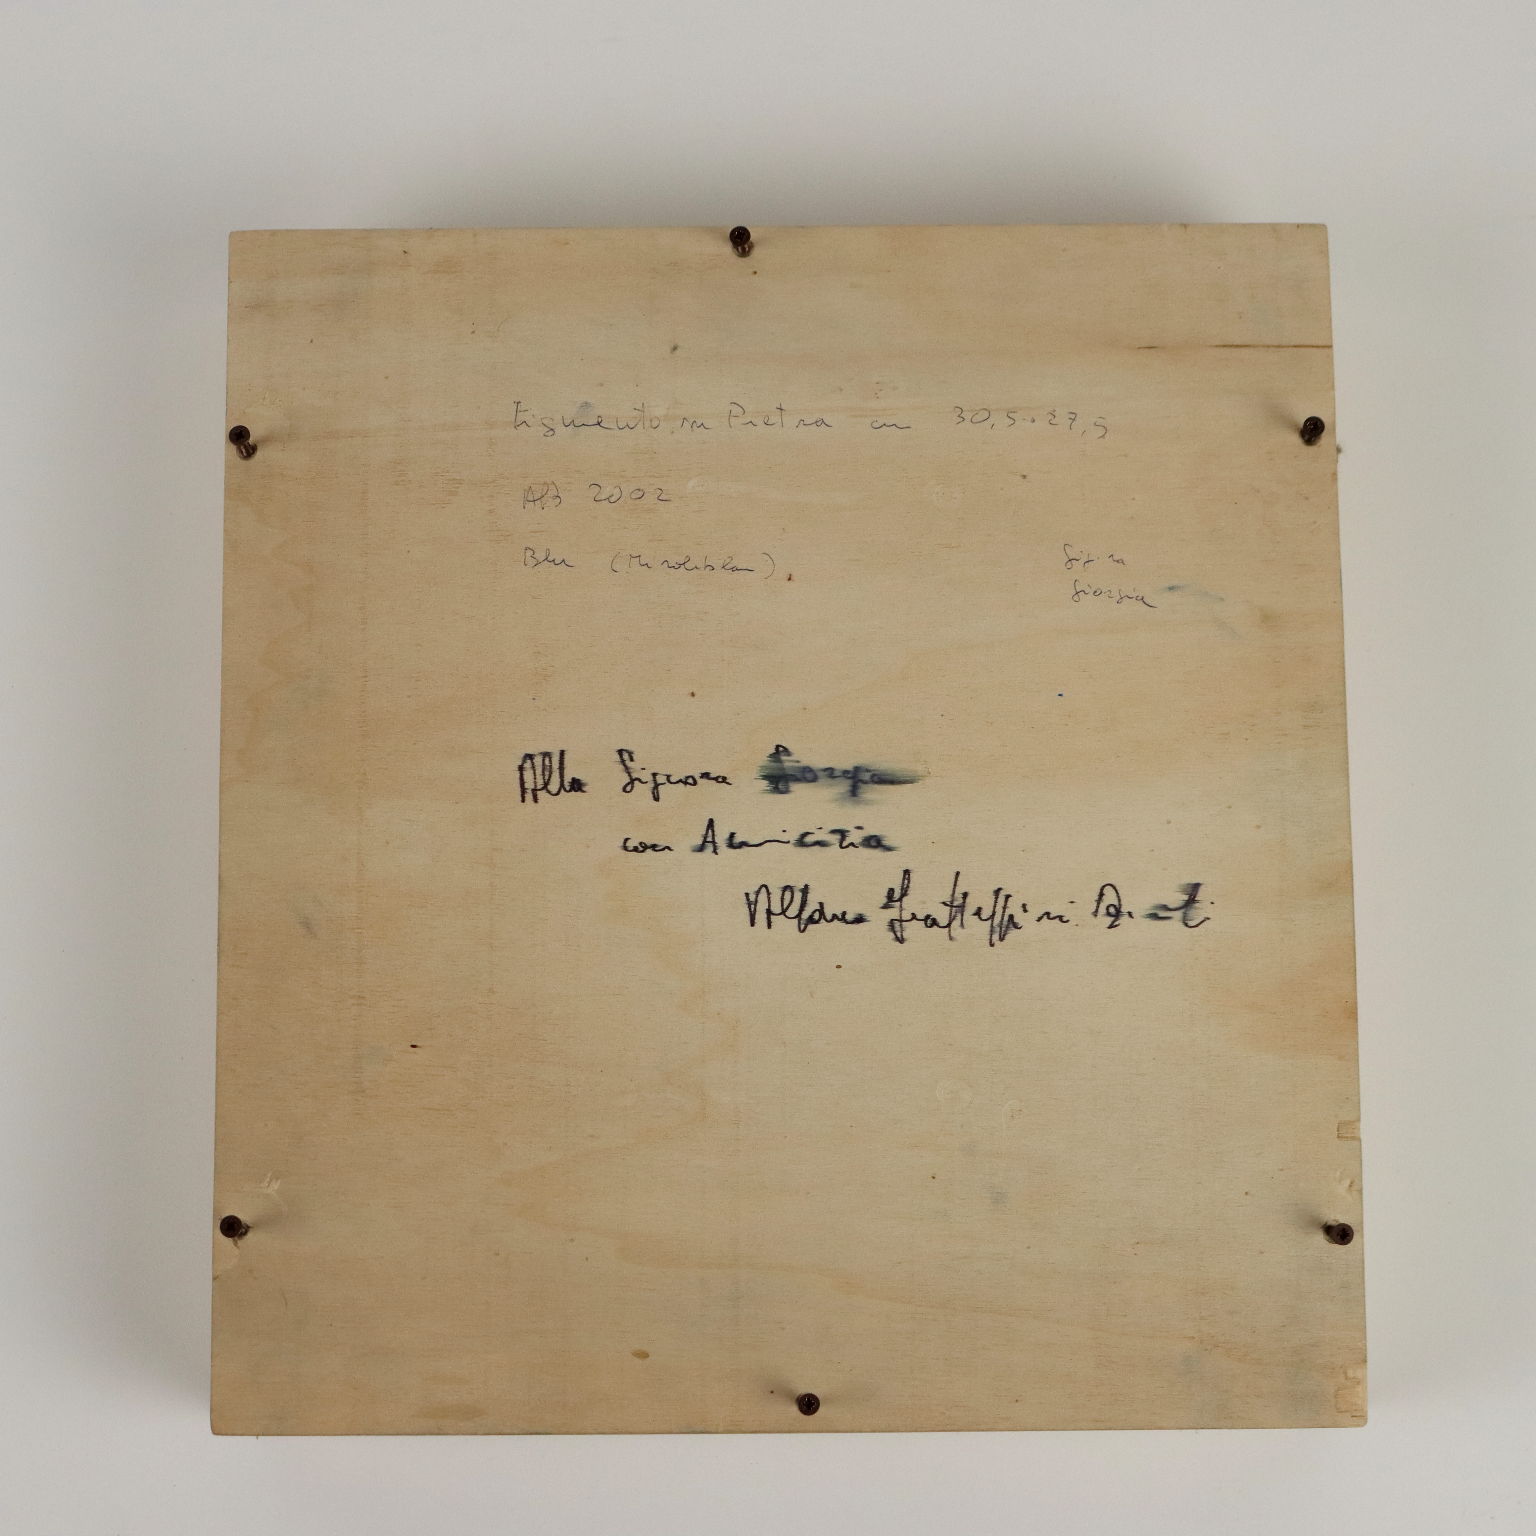 Pigmento su Pietra cm 30,5 · 27,5
AB 2002
Blu
Sig.ra
Giorgia
Alla Signora Giorgia
con Amicizia